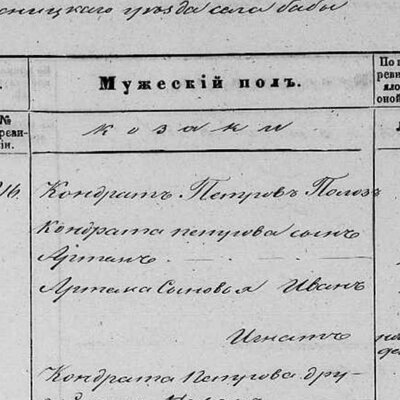 ницкаго уѣзда села Бабы
Мужескій полъ.
По п
ревиз
яло
оной
№
реви-
зіи.
козаки
16.
Кондратъ Петровъ Полозъ
Кондрата Петрова сынъ
Артемъ
Артема Сыновья Иванъ
Игнатъ
Кондрата Петрова дру-